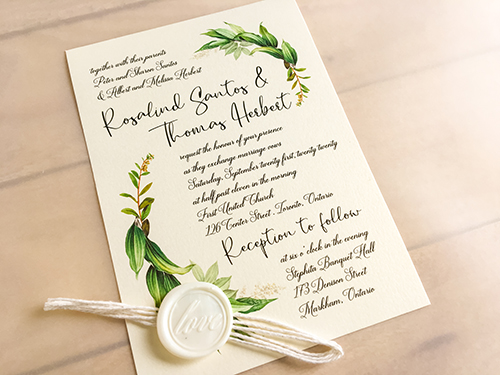 together with their parents
Peter and Sharon Santos
& Albert and Melissa Herbert
Rosalind Santos &
Thomas Herbert
request the honour of your presence
as they exchange marriage vows
Saturday, September twenty first, twenty twenty
at half past eleven in the morning
First United Church
126 Center Street, Toronto, Ontario
Reception to follow
at six o'clock in the evening
Stephita Banquet Hall
173 Denison Street
Markham, Ontario
love